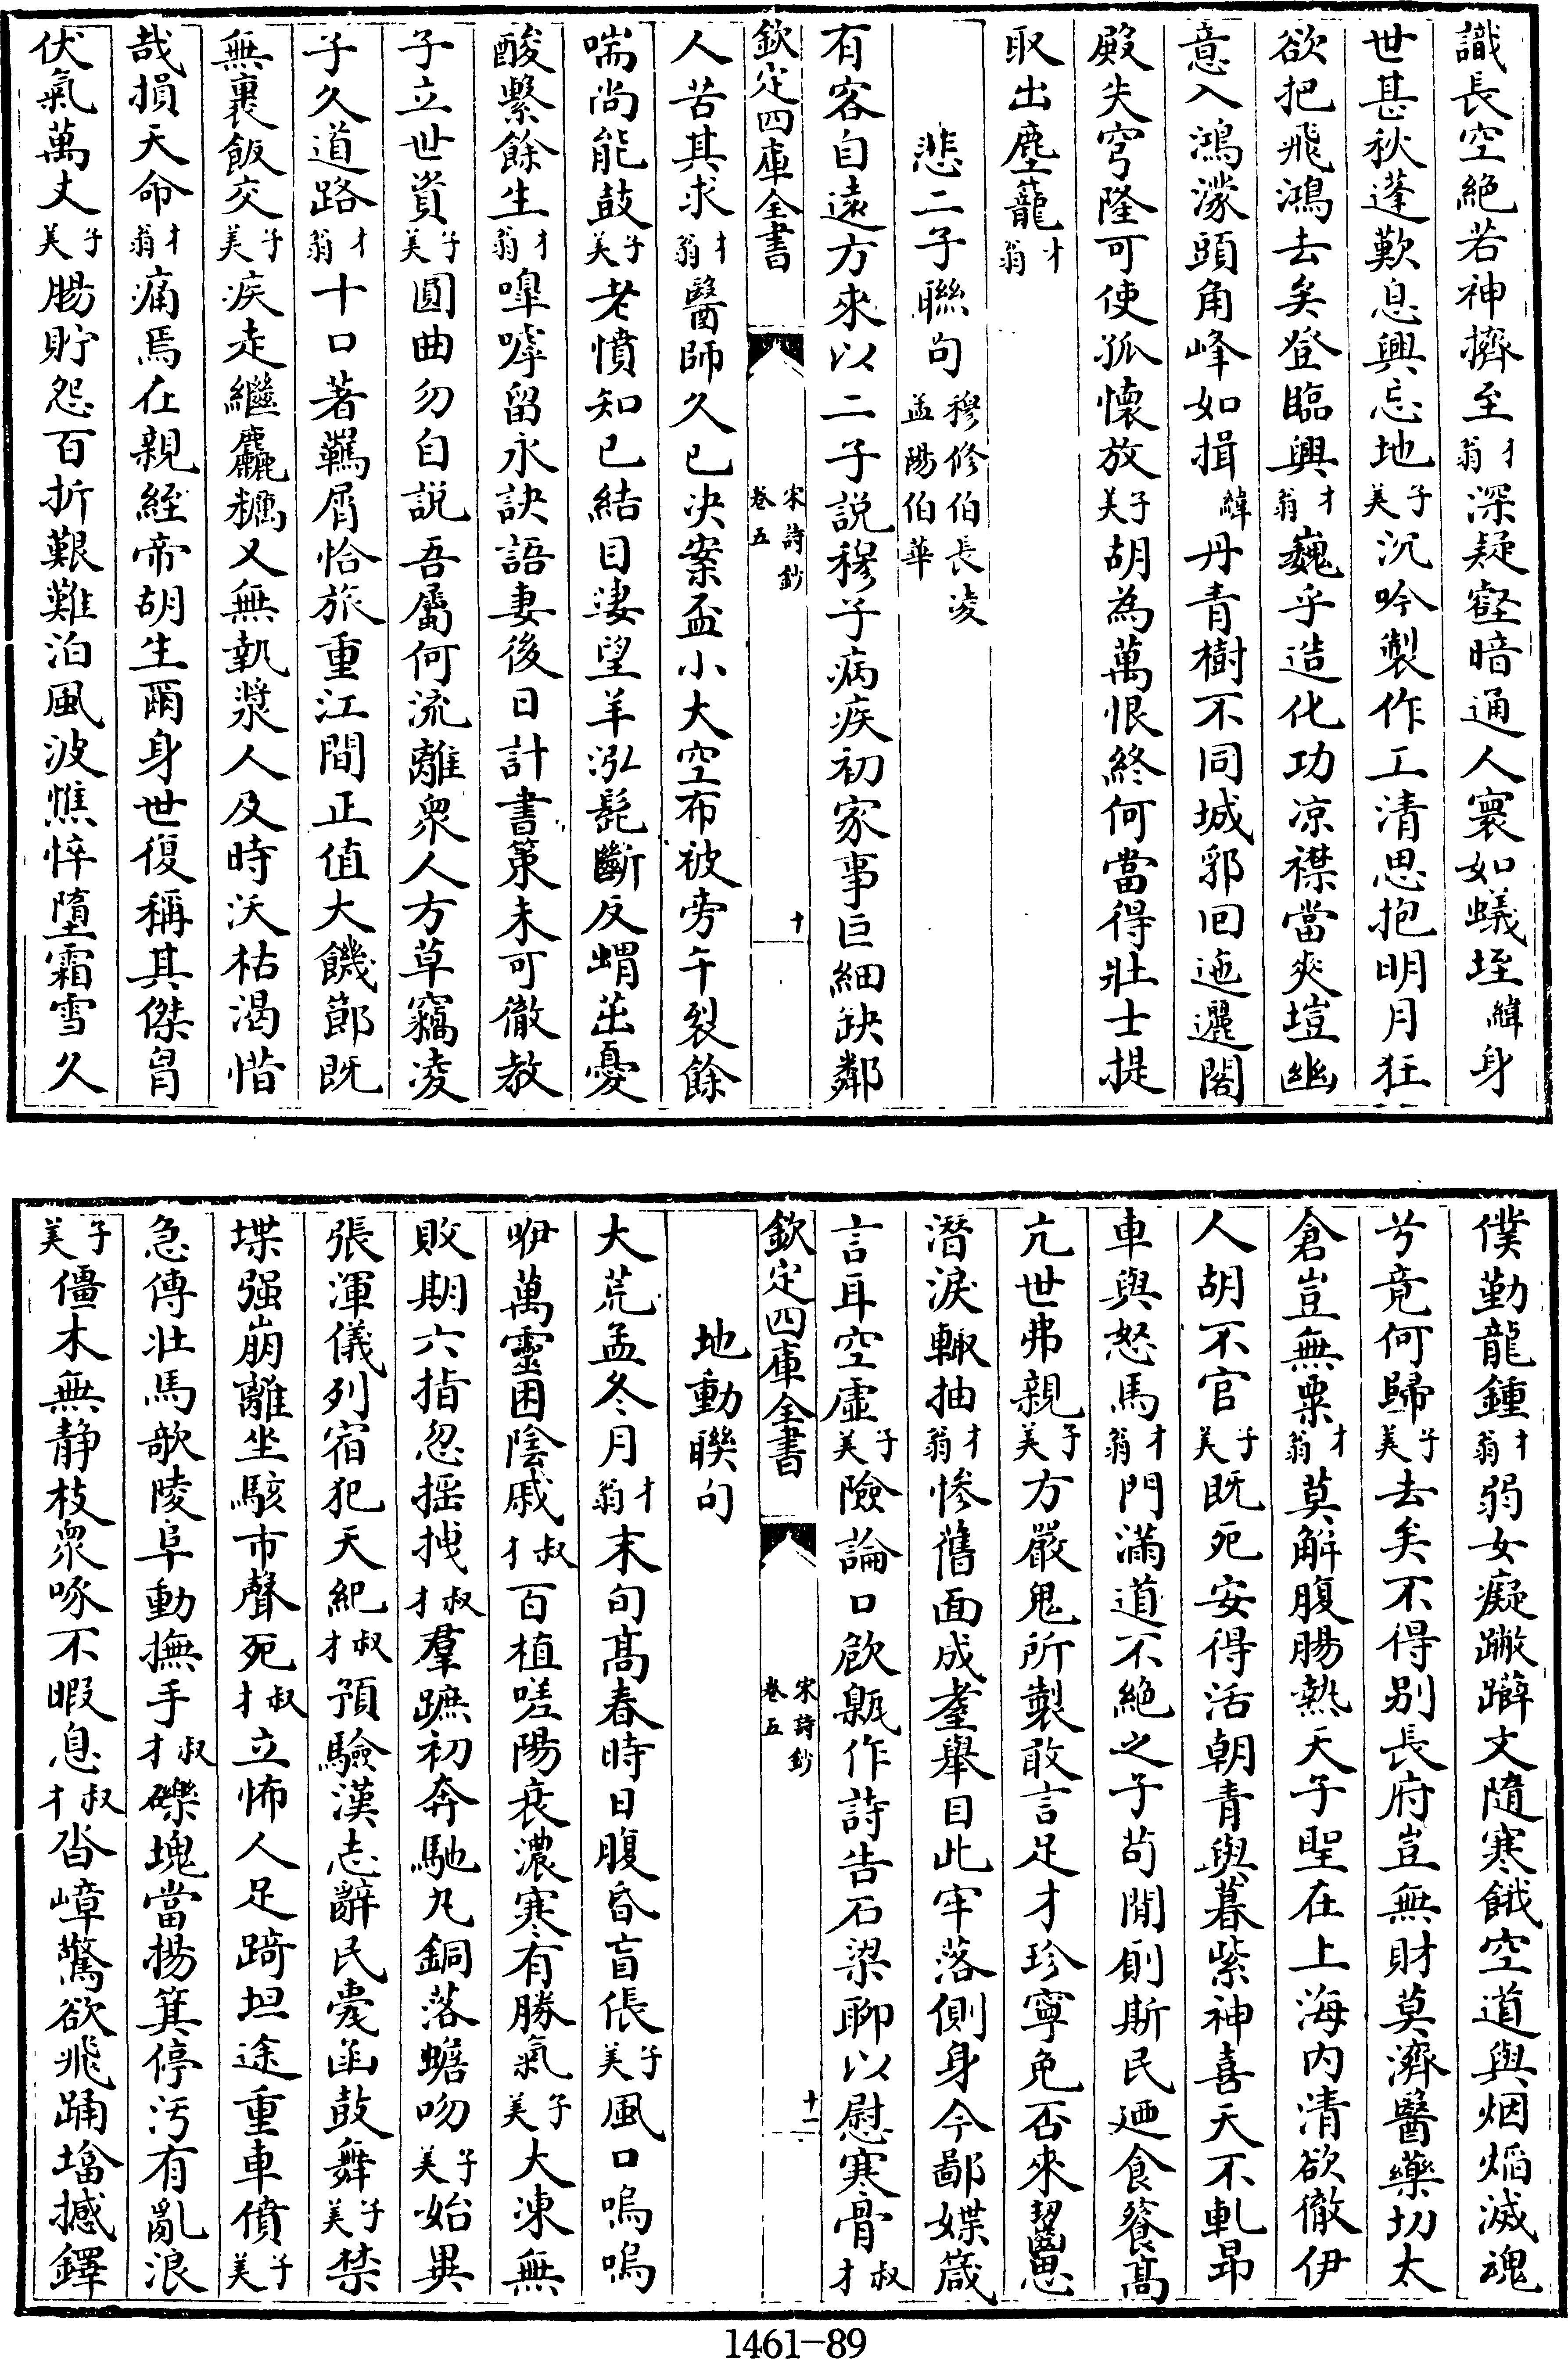 識長空絕若神擠至才翁深疑壑暗通人寰如蟻垤緯身
世甚秋蓬歎息興忘地子美沉吟製作工清思抱明月狂
欲把飛鴻去矣登臨興才翁巍乎造化功凉襟當爽塏幽
意入鴻濛頭角峰如揖緯丹青樹不同城郭回迤邐閣
殿失穹隆可使孤懷放子美胡為萬恨終何當得壯士提
取出塵籠才翁
悲二子聯句穆修伯長凌孟陽伯華
有客自遠方來以二子說穆子病疾初家事巨細缺鄰
欽定四庫全書
宋詩鈔
卷五
十
人苦其求才翁醫師久已决案盃小大空布被旁午裂餘
喘尚能鼓子美老憤知已結目淒望羊泓髭斷反蝟茁憂
酸繫餘生才翁嘷嘑留永訣語妻後日計書策未可徹教
子立世資子美圓曲勿自說吾屬何流離衆人方草竊凌
子久道路才翁十口著羈屑恰旅重江間正值大饑節既
無裹飯交子美疾走繼麤糲又無執漿人及時沃枯渴惜
哉損天命才翁痛焉在親絰帝胡生爾身世復稱其傑胷
伏氣萬丈子美腸貯怨百折艱難泊風波憔悴墮霜雪久
僕勤龍鍾才翁弱女癡蹩躃丈隨寒餓空道與烟焰滅魂
兮竟何歸子美去矣不得别長府豈無財莫濟醫藥切太
倉豈無粟才翁莫解腹腸熱天子聖在上海内清欲徹伊
人胡不官子美既死安得活朝青與暮紫神喜天不軋昂
車與怒馬才翁門滿道不絕之子苟閒劊斯民廼食餮髙
亢世弗親子美方嚴鬼所製敢言足才珍寧免否來齧思
潛淚輙抽才翁慘舊面成耋舉目此牢落側身今鄙媟箴
言耳空虛子美險論口飲㼽作詩告石梁聊以慰寒骨叔才
欽定四庫全書
宋詩鈔
卷五
十一
地動聨句
大荒孟冬月才翁末旬髙舂時日腹昏盲倀子美風口嗚嗚
咿萬靈困陰戚叔才百植嗟陽衰濃寒有勝氣子美大凍無
敗期六指忽摇拽叔才羣蹠初奔馳丸銅落蟾吻子美始異
張渾儀列宿犯天紀叔才預驗漢志辭民甍函鼓舞子美禁
堞强崩離坐駭市聲死叔才立怖人足踦坦途重車僨子美
急傳壯馬欹陵阜動撫手叔才礫塊當揚箕停污有亂浪
子美僵木無静枝衆啄不暇息叔才沓嶂驚欲飛踊㙮撼鐸
1461-89